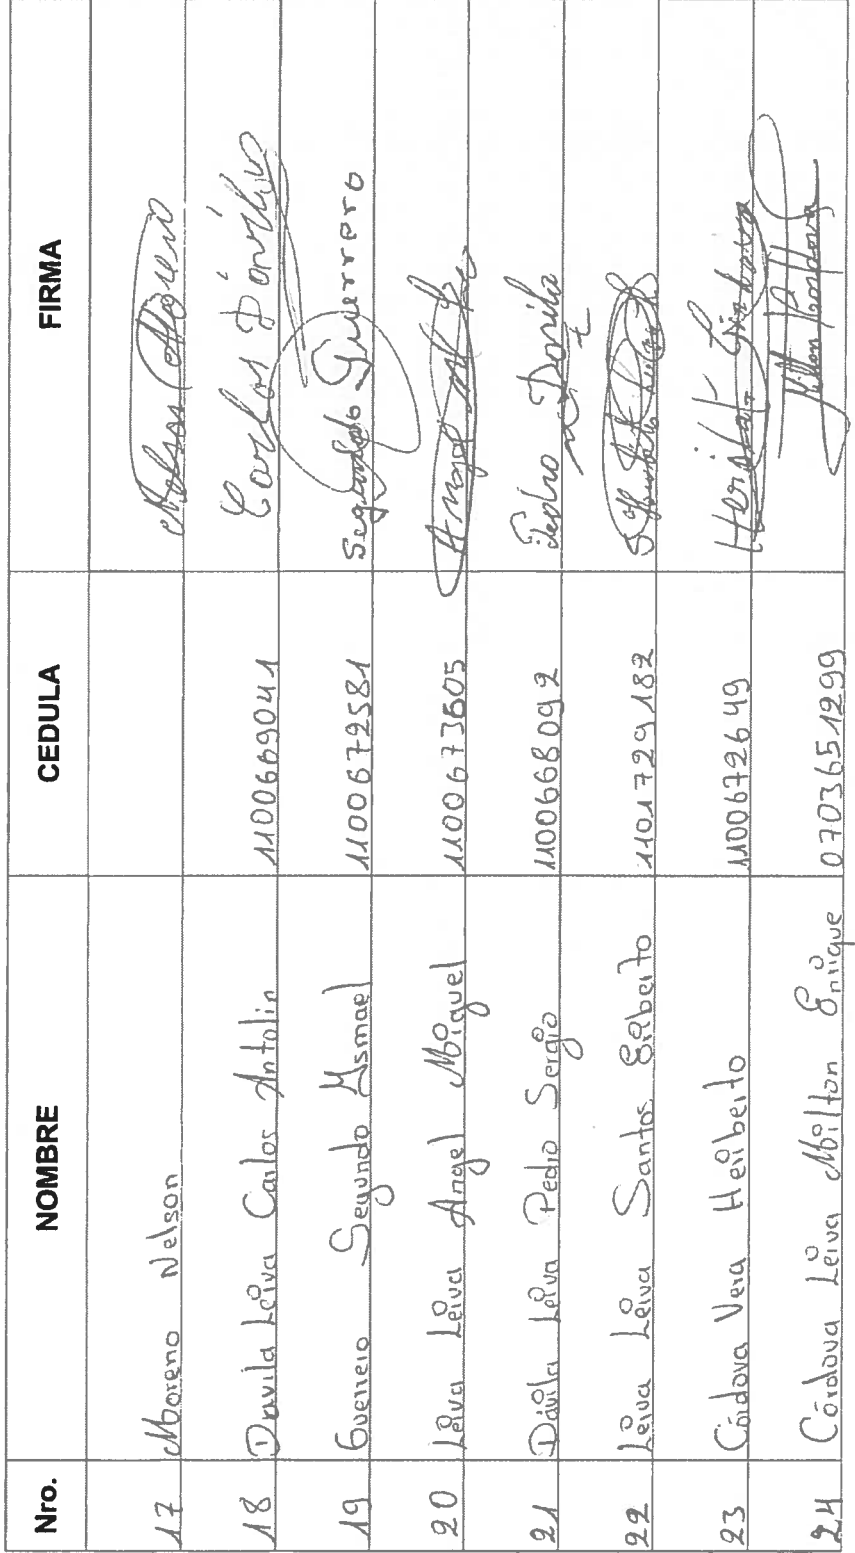 Nro. NOMBRE CEDULA FIRMA
17 Moreno Nelson Nelson Moreno
18 Davila Leiva Carlos Antolin 1100669041 Carlos Dávila
19 Guerrero Segundo Ysmael 1100672581 Segundo Guerrero
20 Leiva Leiva Angel Miguel 1100673605 Angel
21 Dávila Leiva Pedro Sergio 1100668092 Pedro Davila
22 Leiva Leiva Santos Gilberto 1101729182
23 Córdova Vera Heriberto 1100672649 Heribto Cordova
24 Córdova Leiva Milton Enrique 0703651299 Milton Cordova